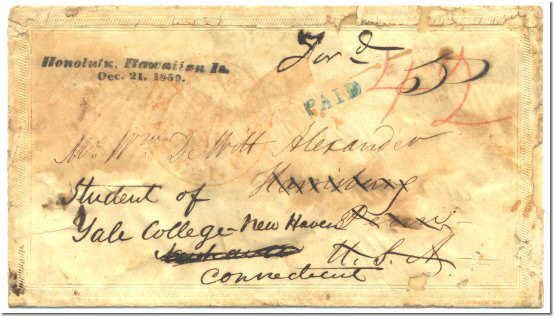 Honolulu, Hawaiian Is.
Dec. 21. 1850.
For'd
PAID
42
Mr. Wm. De Witt Alexander
Harrisburg
Student of
Yale College - New Haven Penn
U.S.A.
Connecticut